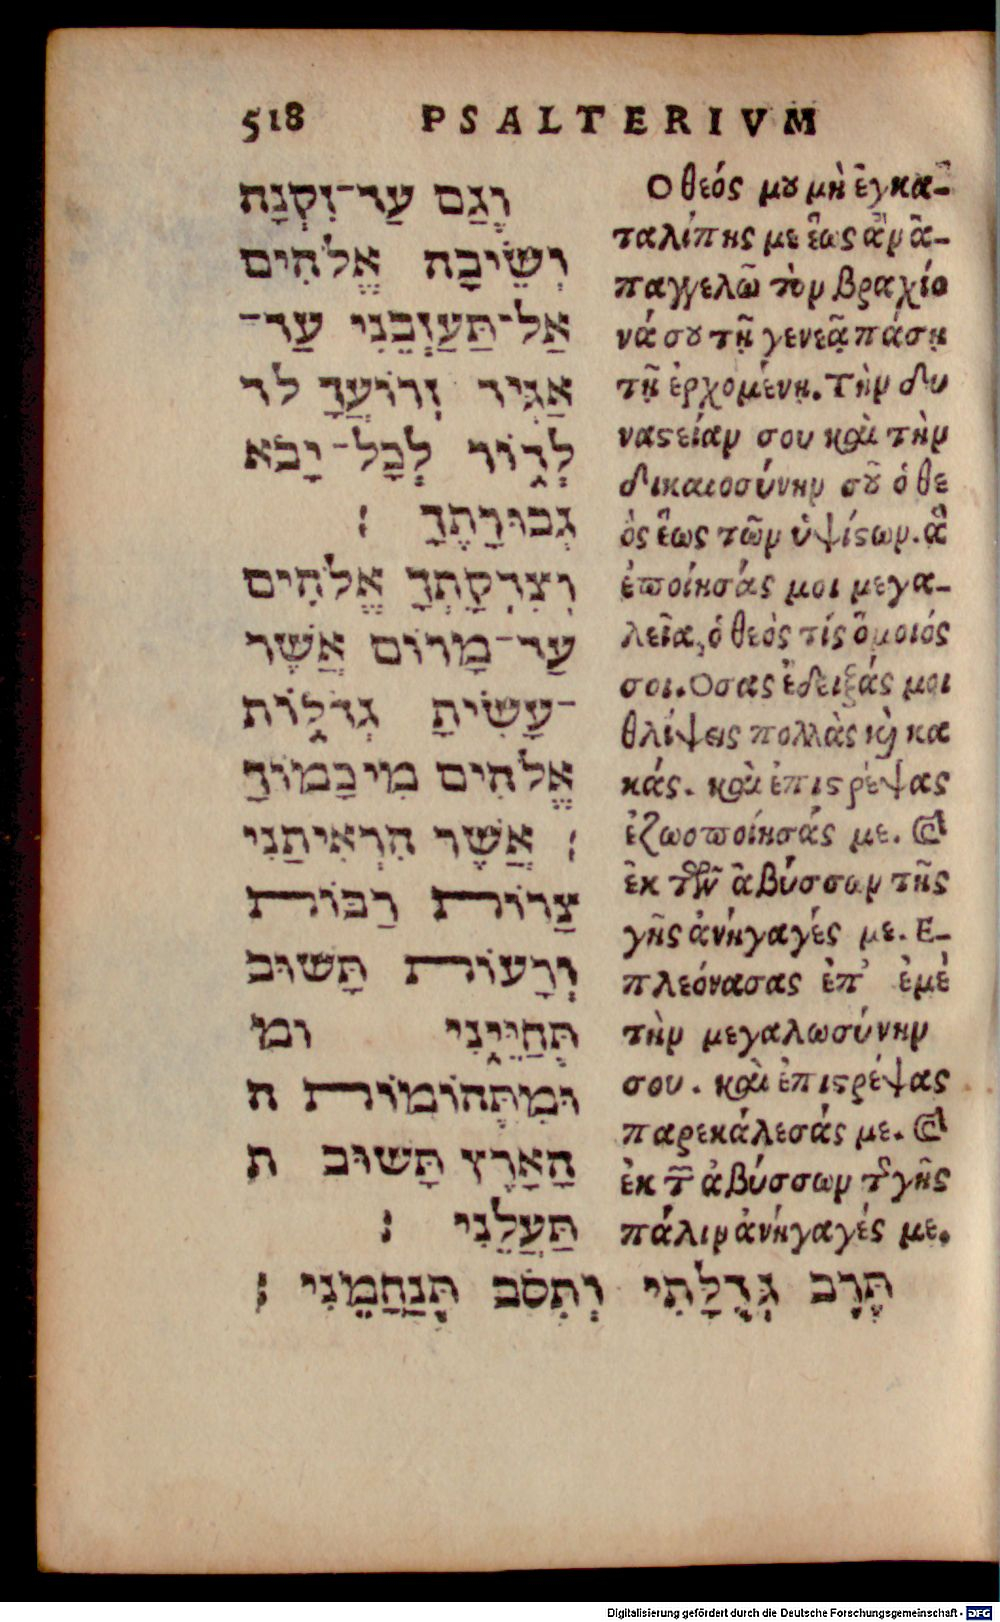 518 PSALTERIVM
וְגַם עַד־זִקְנָה
וְשֵׂיבָה אֱלֹהִים
אַל־תַּעַזְבֵנִי עַד־
אַגִּיד זְרוֹעֲךָ לד
לְדוֹר לְכָל־יָבֹא
גְבוּרָתֶךָ ׃
וְצִדְקָתְךָ אֱלֹהִים
עַד־מָרוֹם אֲשֶׁר
־עָשִׂיתָ גְדֹלוֹת
אֱלֹהִים מִי כָמוֹךָ
׃ אֲשֶׁר הִרְאִיתַנִי
צָרוֹת רַבּוֹת
וְרָעוֹת תָּשׁוּב
תְּחַיֵּינִי ומ
וּמִתְּהוֹמוֹת ה
הָאָרֶץ תָּשׁוּב ת
תַּעֲלֵנִי ׃
תֶּרֶב גְּדֻלָּתִי וְתִסֹּב תְּנַחֲמֵנִי ׃
Ο θεός μου μὴ ἐγκα-
ταλίπης με ἕως ἂν ἀ-
παγγελῶ τὸν βραχίο
νά σου τῇ γενεᾷ πάσῃ
τῇ ἐρχομένῃ. Τὴν δυ
ναστείαν σου καὶ τὴν
δικαιοσύνην σοῦ ὁ θε
ὸς ἕως τῶν ὑψίστων. ἃ
ἐποίησάς μοι μεγα-
λεῖα, ὁ θεὸς τίς ὅμοιός
σοι. Οσας ἔδειξάς μοι
θλίψεις πολλὰς καὶ κα
κάς. καὶ ἐπιστρέψας
ἐζωοποίησάς με. Καὶ
ἐκ τῶν ἀβύσσων τῆς
γῆς ἀνήγαγές με. Ε-
πλεόνασας ἐπ' ἐμὲ
τὴν μεγαλωσύνην
σου. καὶ ἐπιστρέψας
παρεκάλεσάς με. Καὶ
ἐκ τῶν ἀβύσσων τῆς γῆς
πάλιν ἀνήγαγές με.
Digitalisierung gefördert durch die Deutsche Forschungsgemeinschaft - DFG